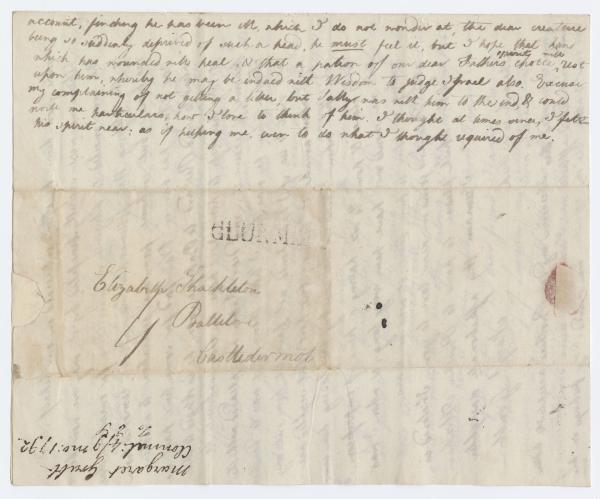 account, finding he has been ill, which I do not wonder at, the dear creature
being so suddenly deprived of such a head, he must feel it, but I hope that hand
which has wounded will heal, & that a portion of our dear Fathers spirit will rest
upon him, whereby he may be indued with Wisdom to judge Israel also. Excuse
my complaining of not getting a letter, but Sally was with him to the end, & could
write me particulars, how I love to think of him. I thought at times since, I felt
his spirit near: as if helping me, even to do what I thought required of me.
CLONM
Elizabeth Shackleton
Ballitore
Castledermot
Margaret Grubb
Clonmel: 4/9 mo: 1792.